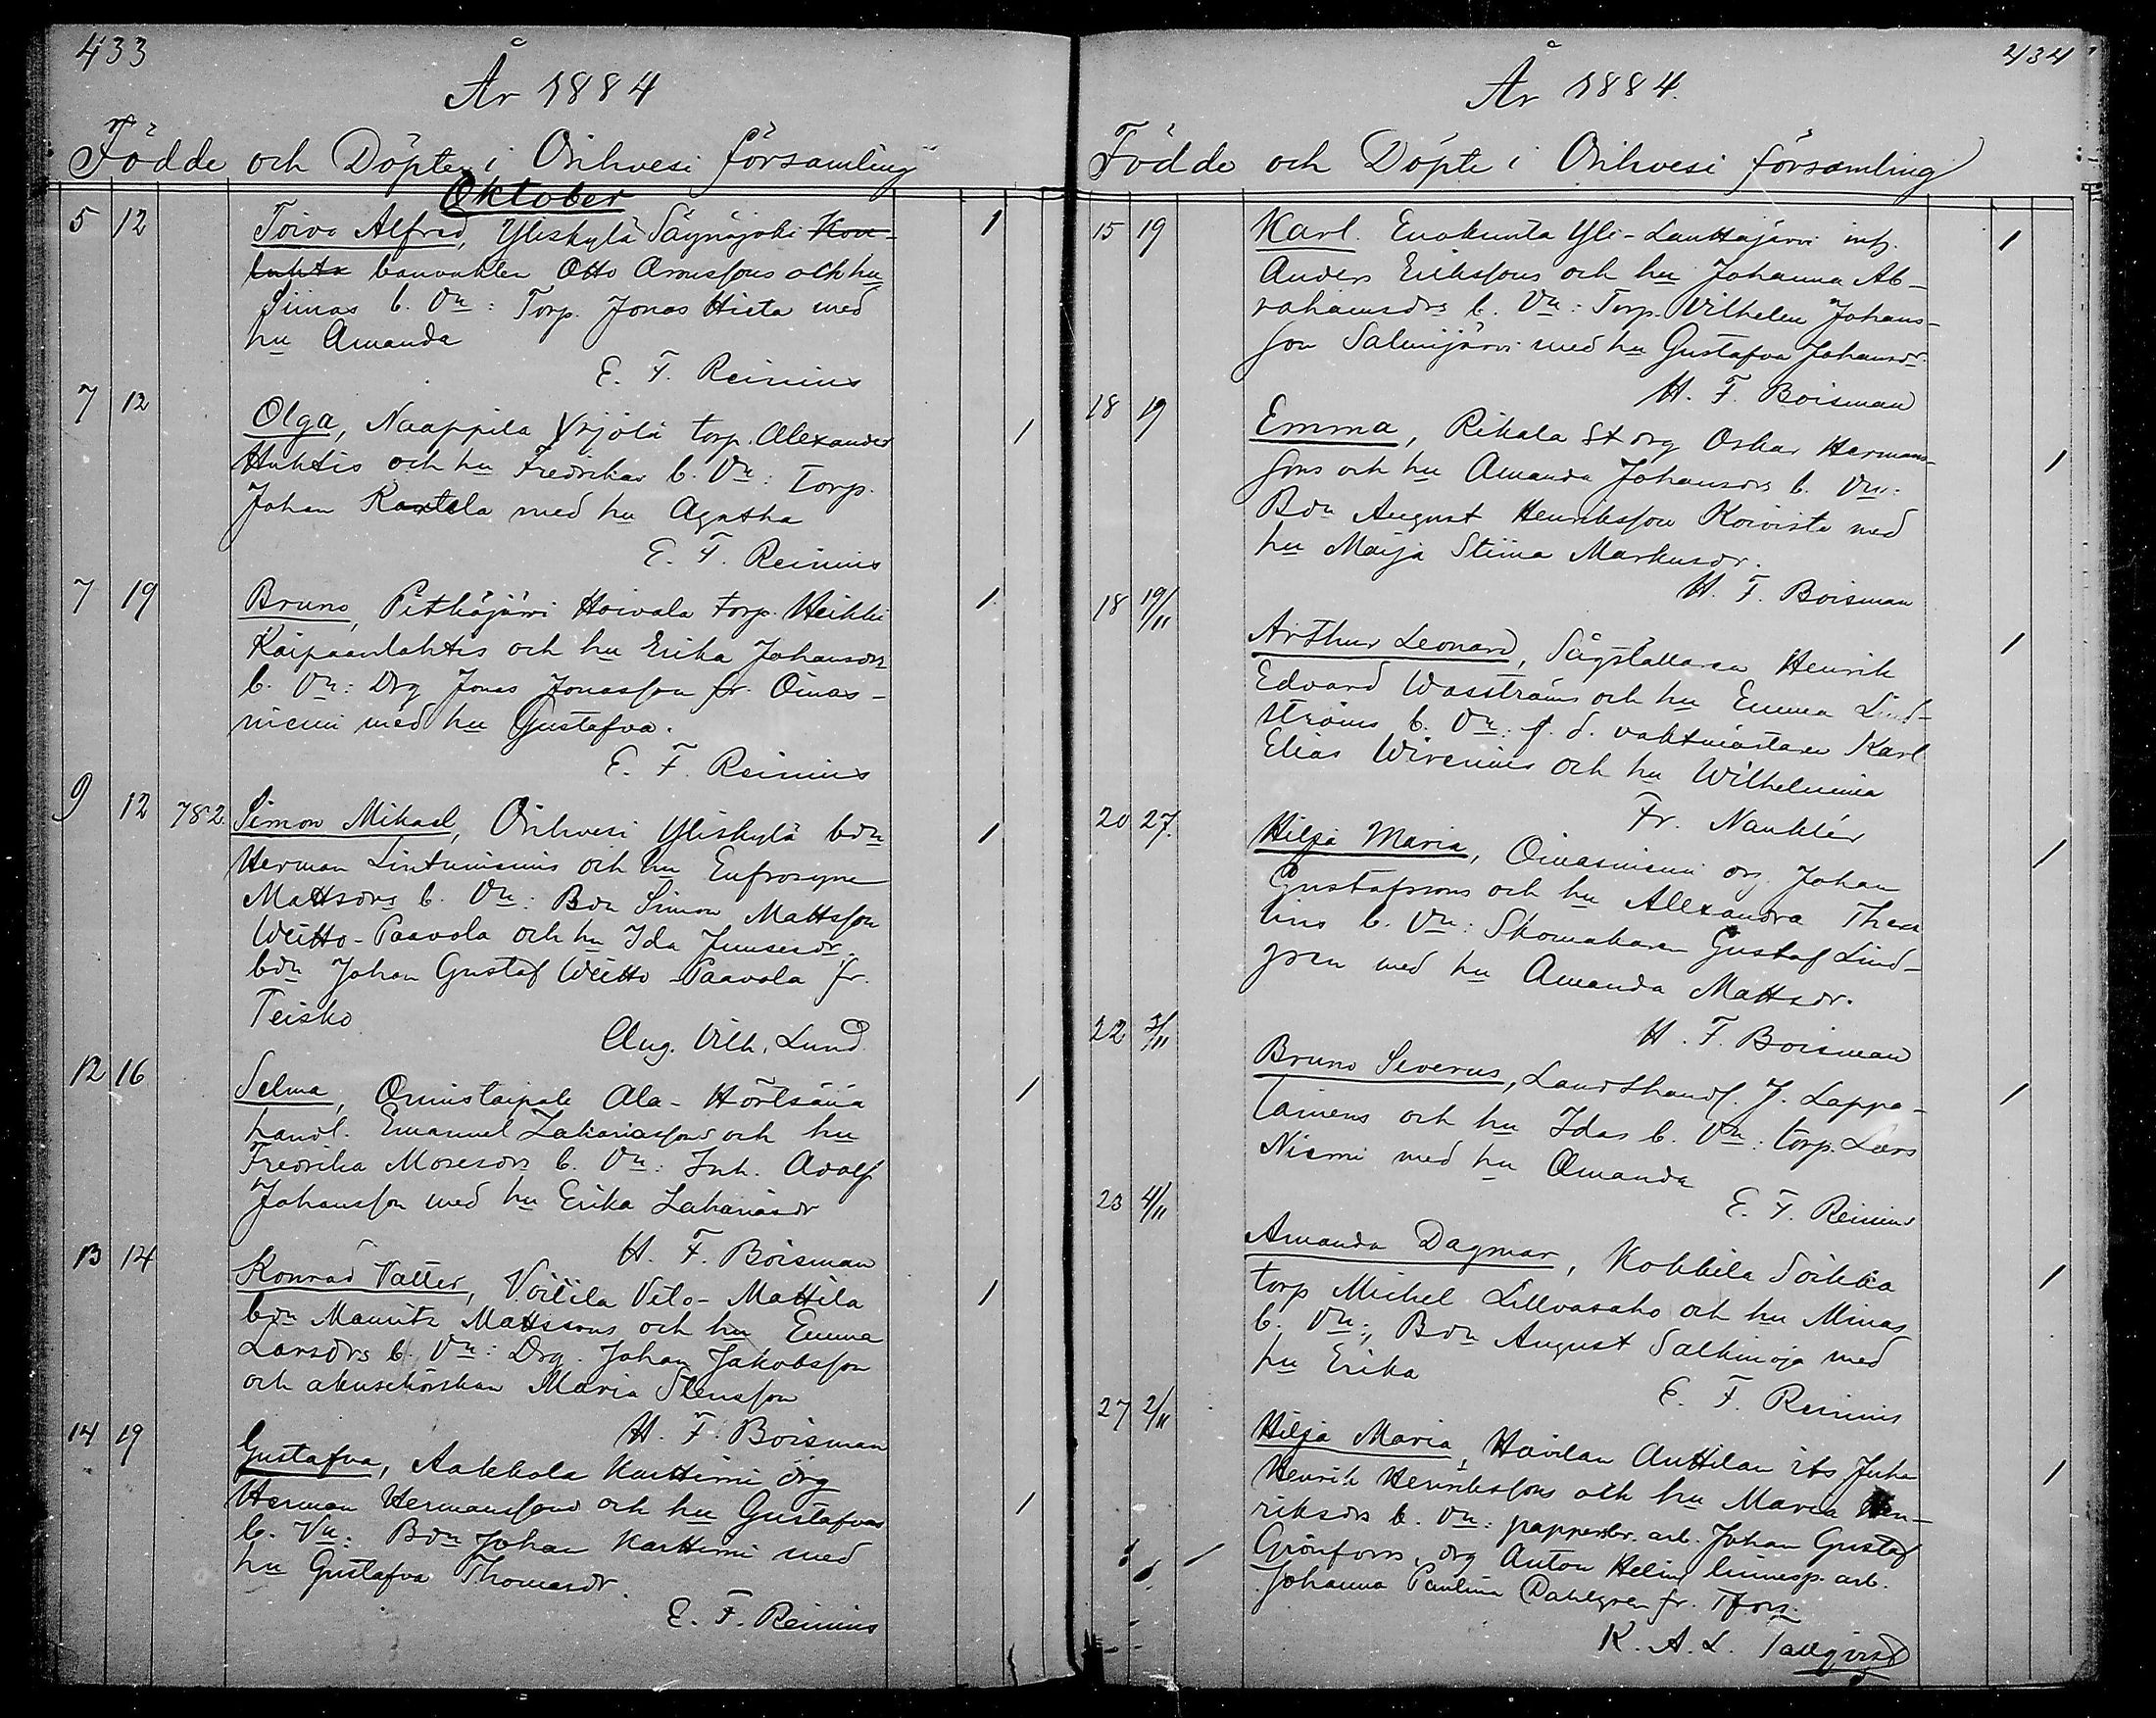 433
År 1884
Födde och Döpte i Orihvesi församling
Oktober
5 12 Toivo Alfred, Yliskylä Säynäjoki Kou-
luhta banvakten Otto Arvessons och hu
Siinas b. Vn: Torp. Jonas Hieta med
hu Amanda 1
E. F. Reinius
7 12 Olga, Naappila Yrjölä torp. Alexander
Huhtis och hu Fredrikas b. Vn: Torp.
Johan Kartela med hu Agatha 1
E. F. Reinius
7 19 Bruno, Pitkäjärvi Hoivala torp. Heikki
Kaipaanlahtis och hu Erika Johansdrs
b. Vn: Drg Jonas Jonasson fr. Oinas-
niemi med hu Gustafva. 1
E. F. Reinius
9 12 782. Simon Mikael, Orihvesi Yliskylä bdn
Herman Lintuniemis och hu Eufrosyne
Mattsdrs b. Vn: Bdn Simon Mattsson
Weitto-Paavola och hu Ida Juusesdr.
bdn Johan Gustaf Weitto-Paavola fr.
Teisko 1
Aug. Vilh. Lund
12 16 Selma, Onnistaipale Ala-Hörtsänä
handl. Emanuel Zakariassons och hu
Fredrika Mosesdrs b. Vn: Inh. Adolf
Johansson med hu Erika Zakariasdr 1
H. F. Boisman
13 14 Konrad Valter, Voitila Velo-Mattila
bdn Maurits Mattssons och hu Emma
Larsdrs b. Vn: Drg. Johan Jakobsson
och Maria Stensson 1
H. F. Boisman
14 19 Gustafva, Aakkola Karttimi drg
Herman Hermanssons och hu Gustafvas
b. Vn: Bdn Johan Karttimi med
hu Gustafva Thomasdr. 1
E. F. Reinius
434
År 1884.
Födde och Döpte i Orihvesi församling
15 19 Karl. Enokunta Yli-Lauttajärvi inh.
Anders Erikssons och hu Johanna Ab-
rahamsdrs b. Vn: Torp. Vilhelm Johans-
son Salmijärvi med hu Gustafva Johansdr. 1
H. F. Boisman
18 19 Emma, Rikala st drg Oskar Hermans-
sons och hu Amanda Johansdrs b. Vn:
Bdn August Henriksson Koivisto med
hu Maija Stiina Markusdr. 1
H. F. Boisman
18 19/11 Arthur Leonard, Sågställaren Henrik
Edvard Wasströms och hu Emma Lind-
ströms b. Vn: f. d. vaktmästaren Karl
Elias Wirenius och hu Wilhelmina 1
Fr. Nauklér
20 27. Hilja Maria, Oinasniemi drg. Johan
Gustafssons och hu Alexandra There
lins b. Vn: Skomakaren Gustaf Lind-
gren med hu Amanda Mattsdr. 1
H. F. Boisman
22 2/11 Bruno Severus, Landthandl. J. Lappa-
lainens och hu Idas b. Vn: torp. Lars
Niemi med hu Amanda 1
E. F. Reinius
23 4/11 Amanda Dagmar, Kokkila Soikkia
torp Mickel Lillvasaho och hu Minas
b. Vn:, Bdn August Salkinoja med
hu Erika 1
E. F. Reinius
27 2/11 Hilja Maria, Havilan Anttilan its Juha
Henrik Henrikssons och hu Maria Hen-
riksdrs b. Vn: pappersbr. arb. Johan Gustaf
Grönfors, drg Anton Helin, linnesp. arb.
Johanna Paulina Dahlgren fr. Tfors. 1
K. A. L. Tallqvist